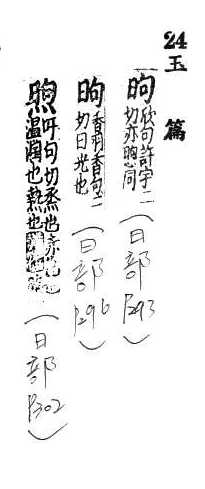 24 玉篇
昫 欣句許宇二
切亦煦同
(日部 P293)
昫 香羽香句二
切日光也
(日部 P296)
煦 吁句切烝也赤皃也
温潤也熱也
(日部 P302)